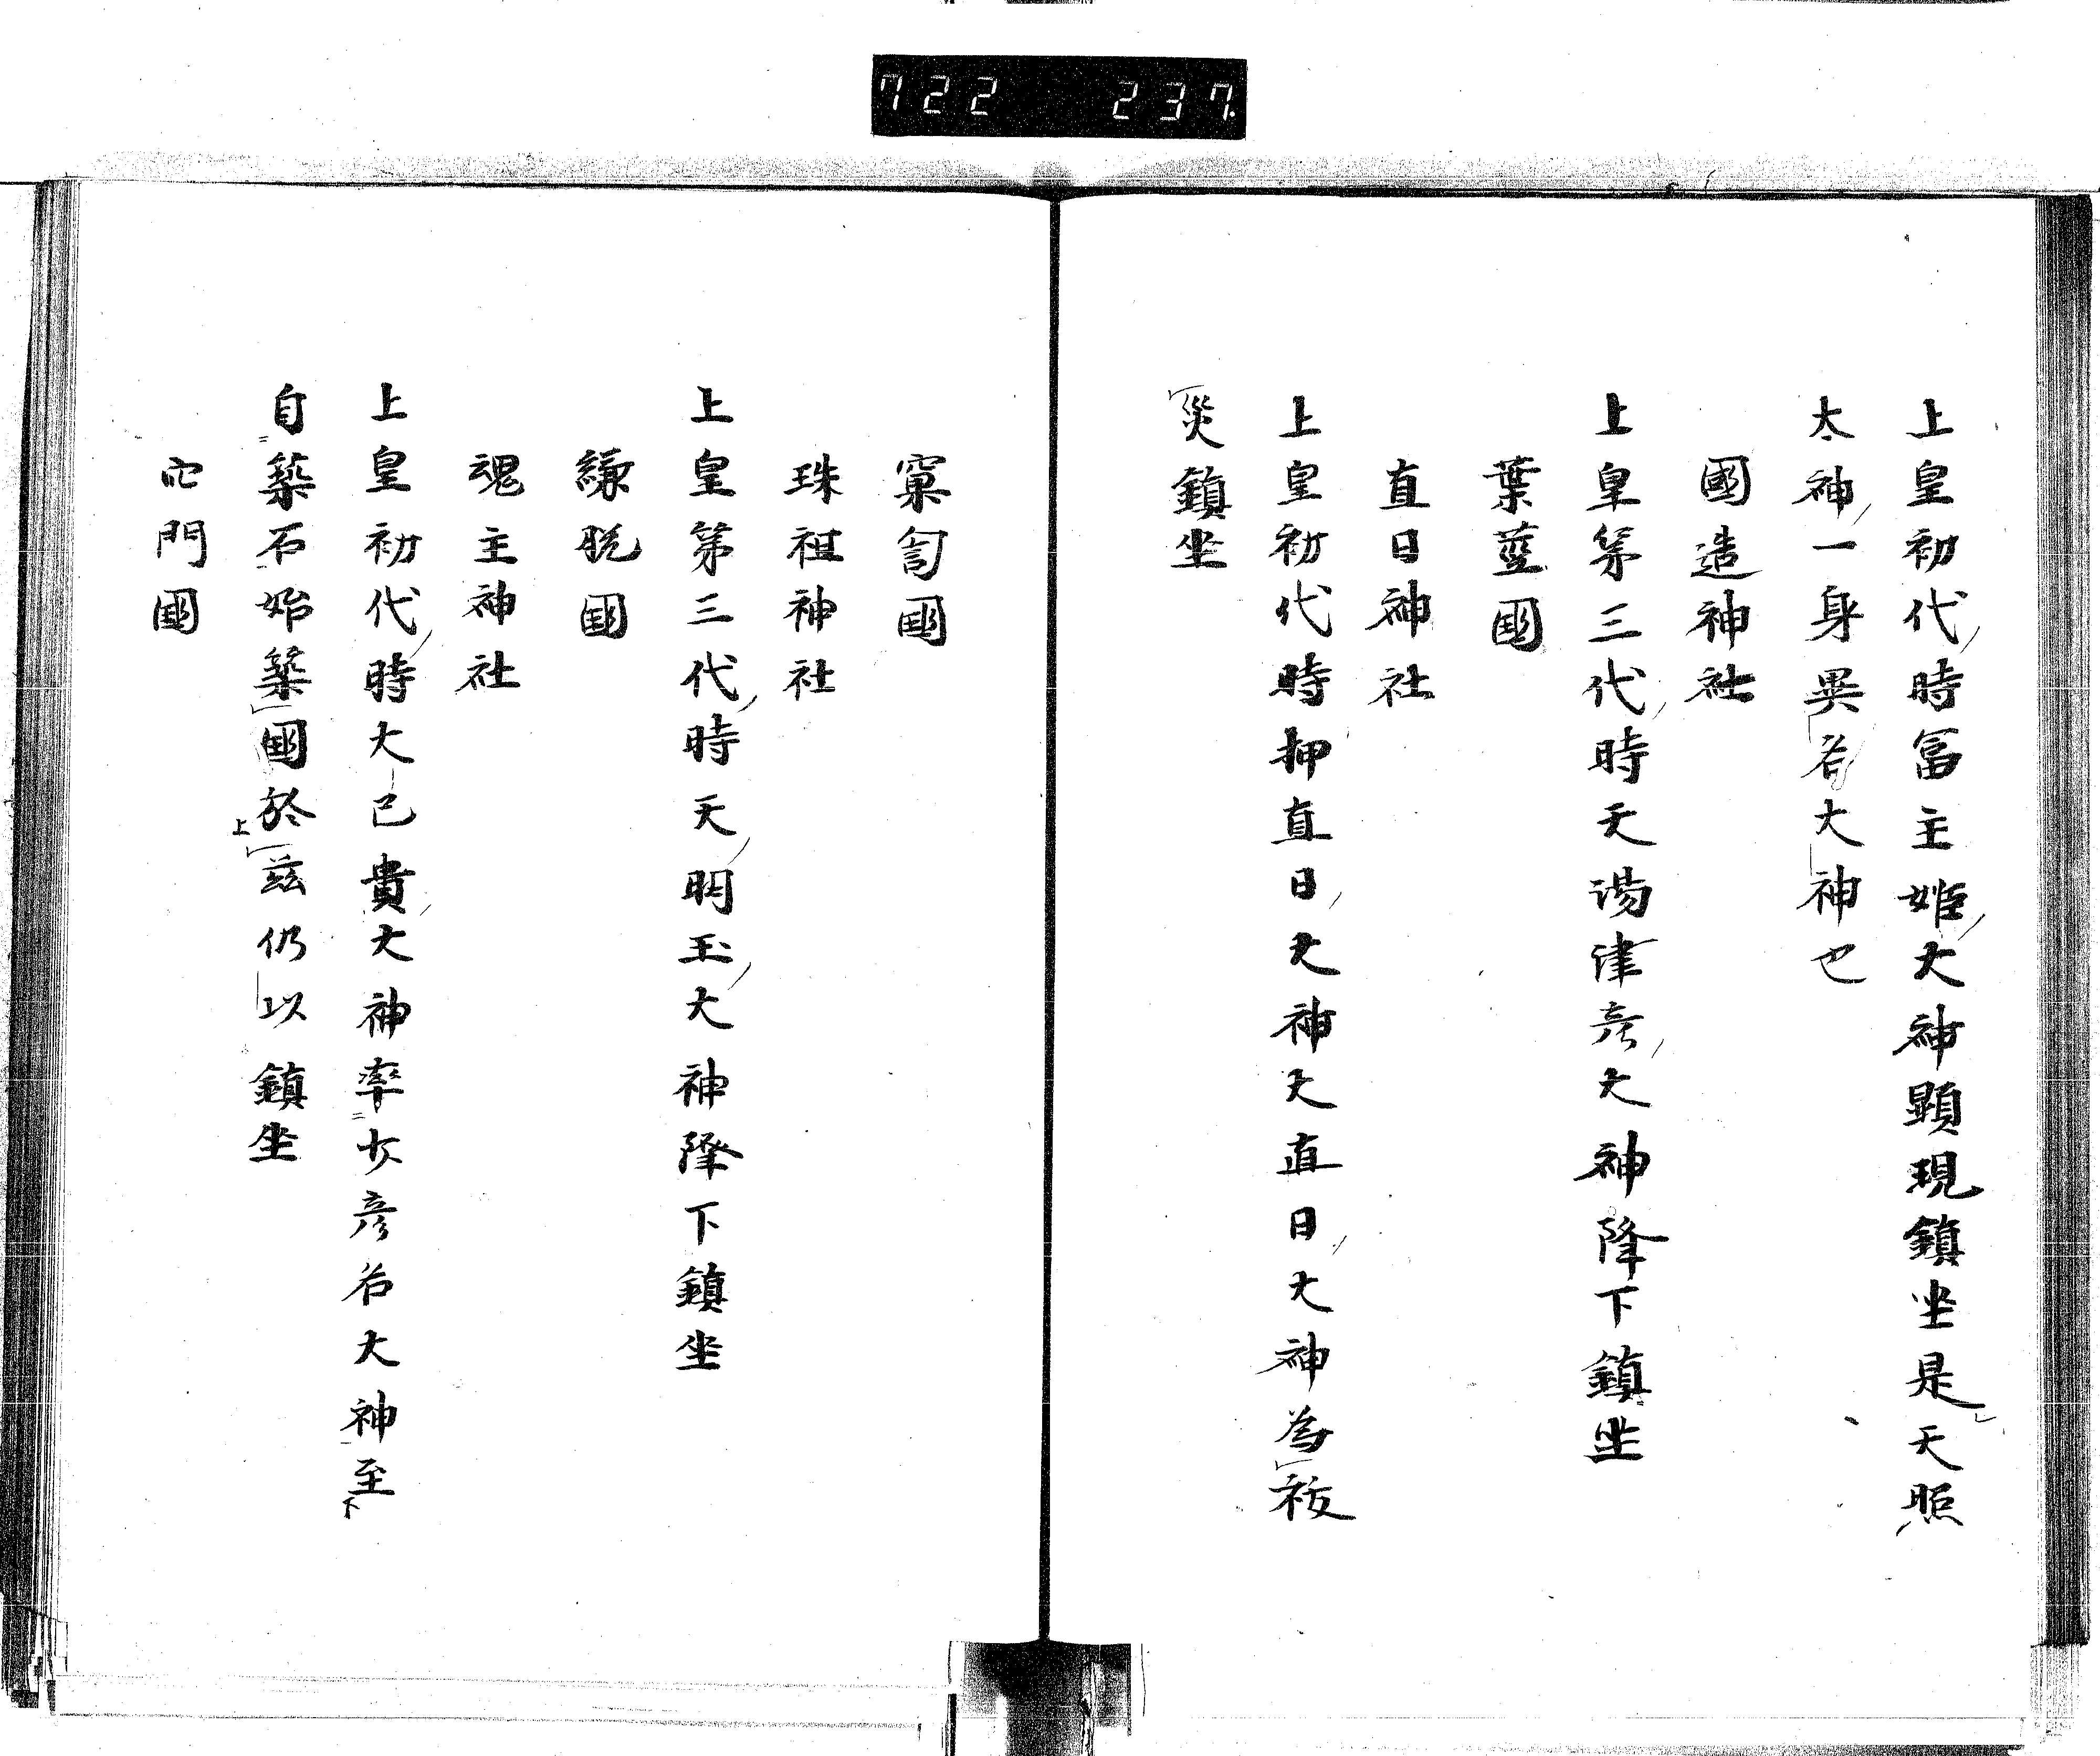 722 237
上皇初代時冨主姫大神顕現鎮坐是天照
太神一身異名大神也
國造神社
上皇第三代時天湯津彦大神降下鎮坐
葉藍國
直日神社
上皇初代時押直日大神大直日大神為祓
災鎮坐
窠訇國
珠祖神社
上皇第三代時天明玉大神降下鎮坐
縑脱國
魂主神社
上皇初代時大己貴大神率少彦名大神至
下
自築石始築國於茲仍以鎮坐
上
穴門國